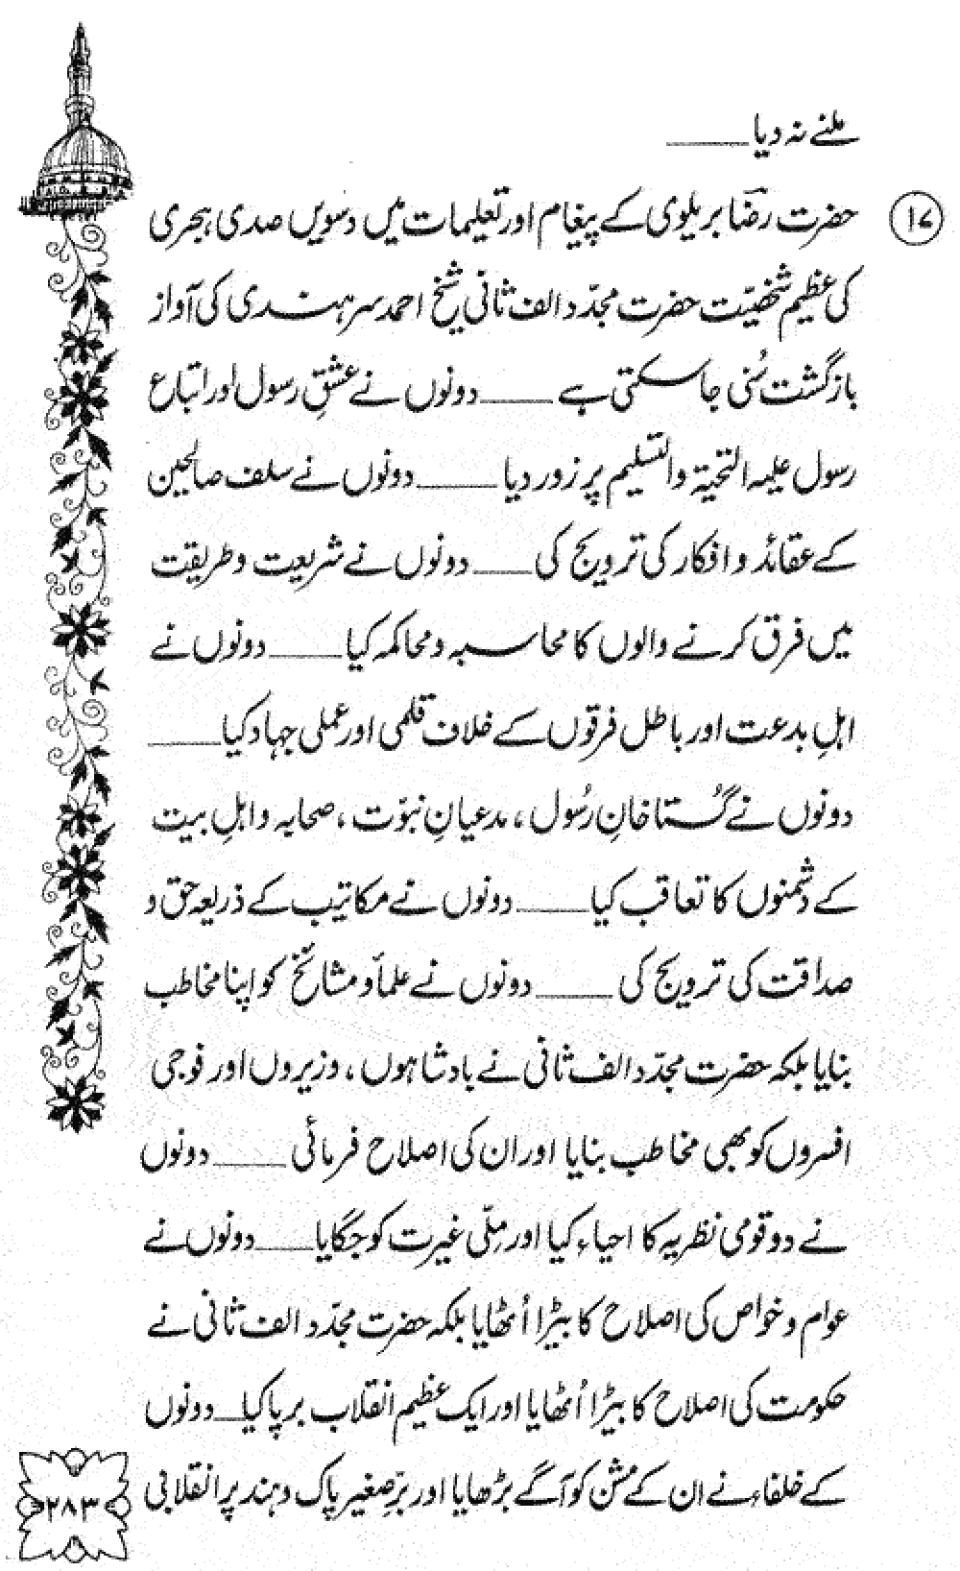 ملنے نہ دیا ____
۱۷ حضرت رضاؔ بریلوی کے پیغام اور تعلیمات میں دسویں صدی ہجری
کی عظیم شخصیّت حضرت مجدّد الف ثانی شیخ احمد سرہندی کی آواز
بازگشت سُنی جا سکتی ہے ____ دونوں نے عشقِ رسول اور اتباع
رسول علیہ التحیۃ والتسلیم پر زور دیا ____ دونوں نے سلف صالحین
کے عقائد و افکار کی ترویج کی ____ دونوں نے شریعت و طریقت
میں فرق کرنے والوں کا محاسبہ و محاکمہ کیا ____ دونوں نے
اہلِ بدعت اور باطل فرقوں کے خلاف قلمی اور عملی جہاد کیا ____
دونوں نے گُستاخانِ رسُول ، مدعیانِ نبوّت ، صحابہ و اہلِ بیت
کے دشمنوں کا تعاقب کیا ____ دونوں نے مکاتیب کے ذریعہ حق و
صداقت کی ترویج کی ____ دونوں نے علمأ و مشائخ کو اپنا مخاطب
بنایا بلکہ حضرت مجدّد الف ثانی نے بادشاہوں ، وزیروں اور فوجی
افسروں کو بھی مخاطب بنایا اور ان کی اصلاح فرمائی ____ دونوں
نے دو قومی نظریہ کا احیاء کیا اور مِلّی غیرت کو جگایا ____ دونوں نے
عوام و خواص کی اصلاح کا بیڑا اُٹھایا بلکہ حضرت مجدّد الف ثانی نے
حکومت کی اصلاح کا بیڑا اُٹھایا اور ایک عظیم انقلاب برپا کیا __ دونوں
کے خلفاء نے ان کے مشن کو آگے بڑھایا اور برِّصغیر پاک و ہند پر انقلابی
۲۸۳